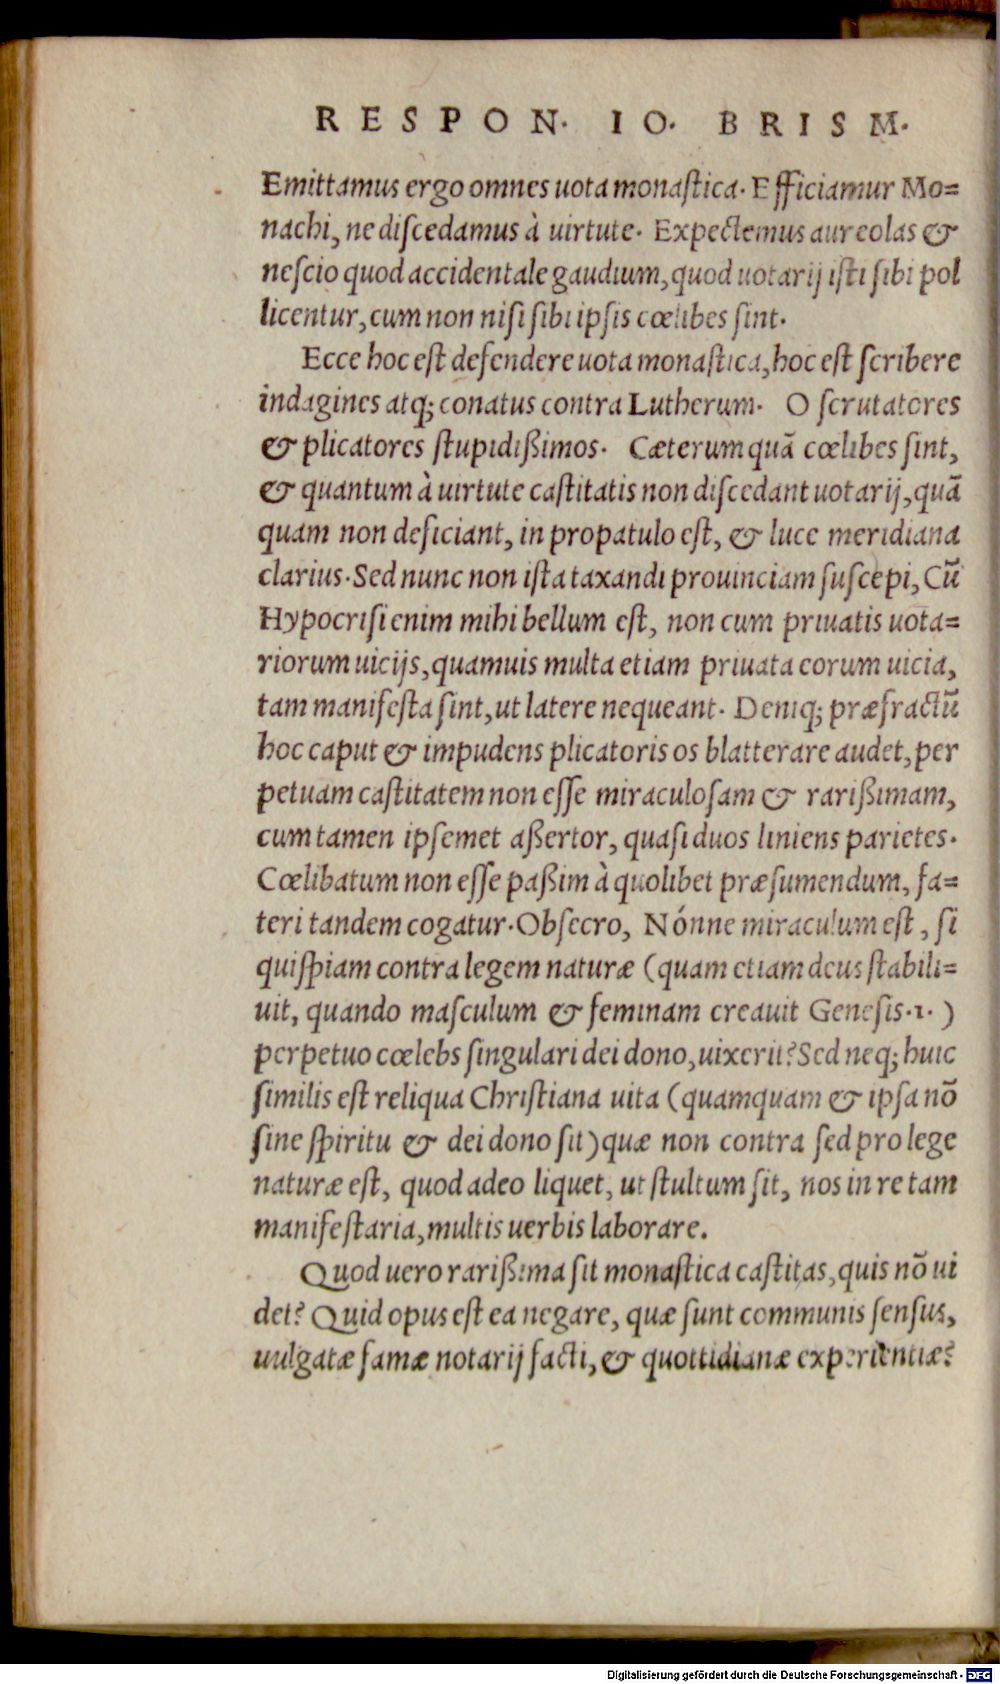 RESPON. IO. BRISM.
Emittamus ergo omnes uota monaſtica. Efficiamur Mo=
nachi, ne diſcedamus à uirtute. Expectemus aureolas &
neſcio quod accidentale gaudium, quod uotarij iſti ſibi pol
licentur, cum non niſi ſibi ipſis cœlibes ſint.
Ecce hoc eſt defendere uota monaſtica, hoc eſt ſcribere
indagines atq; conatus contra Lutherum. O ſcrutatores
& plicatores ſtupidißimos. Cæterum quā cœlibes ſint,
& quantum à uirtute caſtitatis non diſcedant uotarij, quā
quam non deficiant, in propatulo eſt, & luce meridiana
clarius. Sed nunc non iſta taxandi prouinciam ſuſcepi, Cū
Hypocriſi enim mihi bellum eſt, non cum priuatis uota=
riorum uicijs, quamuis multa etiam priuata eorum uicia,
tam manifeſta ſint, ut latere nequeant. Deniq; præfractū
hoc caput & impudens plicatoris os blatterare audet, per
petuam caſtitatem non eſſe miraculoſam & rarißimam,
cum tamen ipſemet aßertor, quaſi duos liniens parietes.
Cœlibatum non eſſe paßim à quolibet præſumendum, fa=
teri tandem cogatur. Obſecro, Nónne miraculum eſt, ſi
quiſpiam contra legem naturæ (quam etiam deus ſtabili=
uit, quando maſculum & feminam creauit Geneſis.1.)
perpetuo cœlebs ſingulari dei dono, uixerit? Sed neq; huic
ſimilis eſt reliqua Chriſtiana uita (quamquam & ipſa nō
ſine ſpiritu & dei dono ſit) quæ non contra ſed pro lege
naturæ eſt, quod adeo liquet, ut ſtultum ſit, nos in re tam
manifeſtaria, multis uerbis laborare.
Quod uero rarißima ſit monaſtica caſtitas, quis nō ui
det? Quid opus eſt ea negare, quæ ſunt communis ſenſus,
uulgatæ famæ notarij facti, & quottidianæ experientiæ?
Digitalisierung gefördert durch die Deutsche Forschungsgemeinschaft - DFG